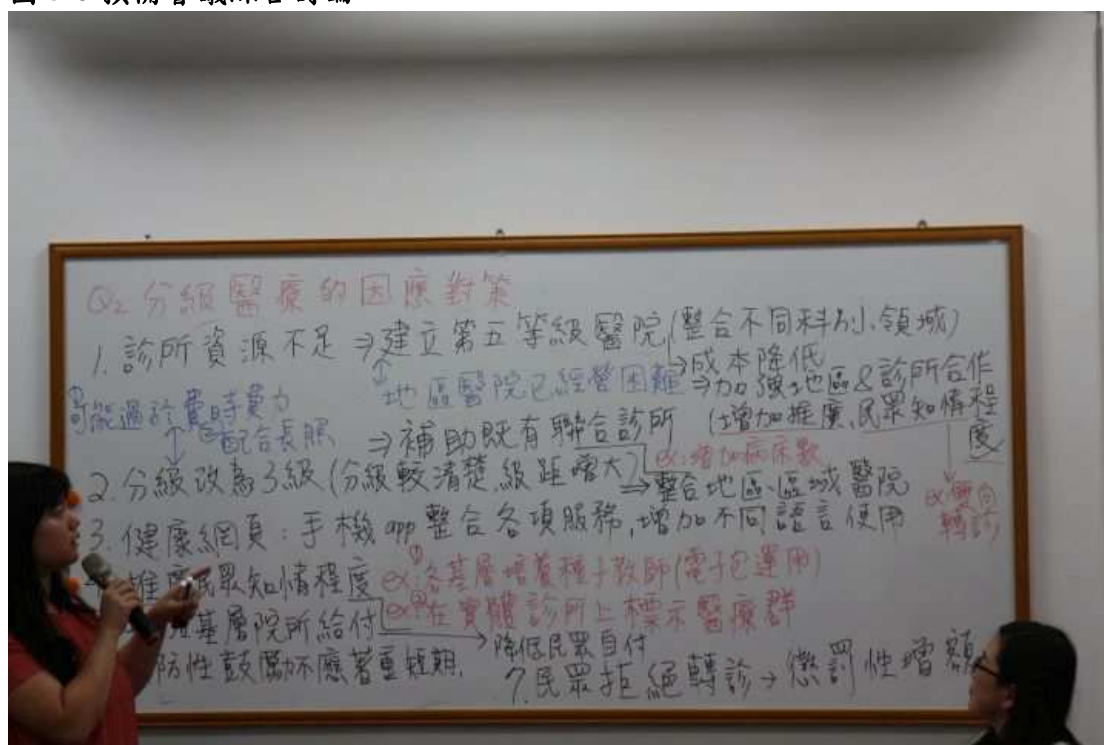 Q2 分級醫療的因應對策
1. 診所資源不足 ⇒ 建立第五等級醫院(整合不同科別、領域)
→成本降低
地區醫院已經營困難 ⇒加強地區&診所合作
可能過於費時費力
配合長照 ⇒ 補助既有聯合診所 (增加推廣、民眾知情程度
ex:增加病床數
2. 分級改為3級(分級較清楚,級距增大) ⇒整合地區、區域醫院
ex:雙向轉診
3. 健康網頁:手機app整合各項服務,增加不同語言使用
推廣民眾知情程度 ex:各基層培養種子教師(電子包運用)
ex:在實體診所上標示醫療群
基層院所給付 → 降低民眾自付
防性鼓勵不應著重短期.
7.民眾拒絕轉診→懲罰性增額